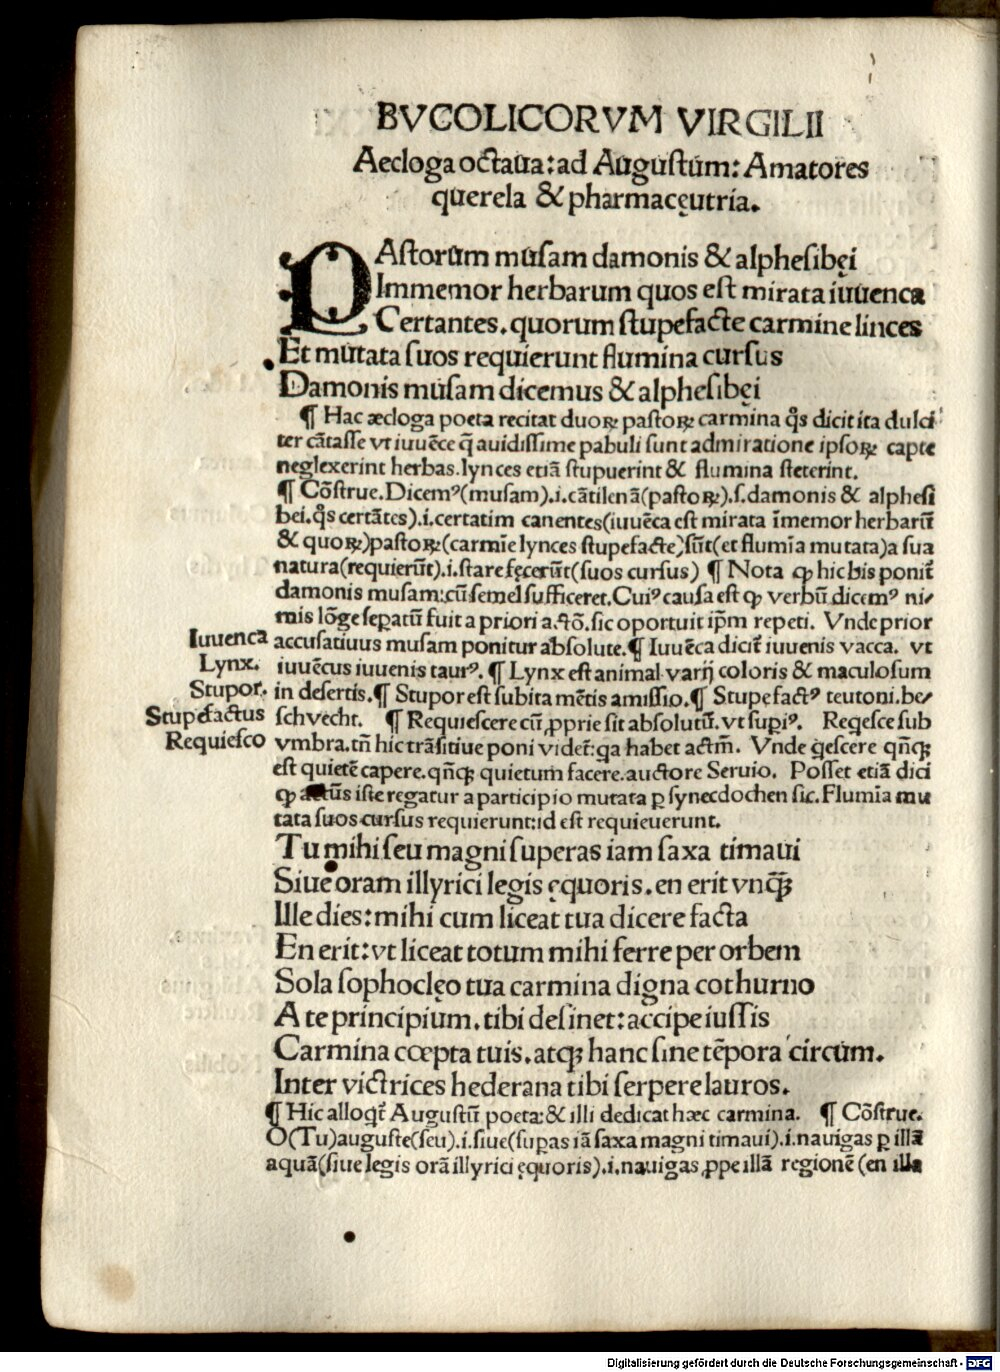 BVCOLICORVM VIRGILII
Aecloga octaua: ad Augustum: Amatores
querela & pharmacęutria.
PAstorum musam damonis & alphesibęi
Immemor herbarum quos est mirata iuuenca
Certantes. quorum stupefacte carmine linces
Et mutata suos requierunt flumina cursus
Damonis musam dicemus & alphesibęi
¶ Hac æcloga poeta recitat duoꝝ pastoꝝ carmina q̄s dicit ita dulci
ter cātasse vt iuuēce q̄ auidissime pabuli sunt admiratione ipsoꝝ capte
neglexerint herbas. lynces etiā stupuerint & flumina steterint.
¶ Cōstrue. Dicemꝰ (musam) .i. cātilenā (pastoꝝ) .s. damonis & alphesi
bei. q̄s certātes) .i. certatim canentes (iuuēca est mirata īmemor herbarū
& quoꝝ) pastoꝝ (carmīe lynces stupefacte) sūt (et flumīa mutata) a sua
natura (requierūt) .i. stare fęcerūt (suos cursus) ¶ Nota ꝙ hic bis ponit̄
damonis musam: cū semel sufficeret. Cuiꝰ causa est ꝙ verbū dicemꝰ ni/
mis lōge sepatū fuit a priori actō. sic oportuit ip̄m repeti. Vnde prior
Iuuenca accusatiuus musam ponitur absolute. ¶ Iuuēca dicit̄ iuuenis vacca. vt
Lynx. iuuēcus iuuenis taurꝰ. ¶ Lynx est animal varij coloris & maculosum
Stupor. in desertis. ¶ Stupor est subita mētis amissio. ¶ Stupefactꝰ teutoni. be/
Stupefactus schvecht. ¶ Requiescere cū ꝓprie sit absolutū. vt supiꝰ. Reqesce sub
Requiesco vmbra. tn̄ hic trāsitiue poni videt̄: qa habet actm̄. Vnde qescere qn̄qꝫ
est quietē capere. qn̄qꝫ quietum facere. auctore Seruio. Posset etiā dici
ꝙ actūs iste regatur a participio mutata ꝑ synecdochen sic. Flumīa mu
tata suos cursus requierunt: id est requieuerunt.
Tu mihi seu magni superas iam saxa timaui
Siue oram illyrici legis ęquoris. en erit vnqꝫ̄
Ille dies: mihi cum liceat tua dicere facta
En erit: vt liceat totum mihi ferre per orbem
Sola sophoclęo tua carmina digna cothurno
A te principium. tibi desinet: accipe iussis
Carmina cœpta tuis. atqꝫ hanc sine tēpora circum.
Inter victrices hederana tibi serpere lauros.
¶ Hic alloqt̄ Augustū poeta: & illi dedicat hæc carmina. ¶ Cōstrue.
O (Tu) auguste (seu) .i. siue (supas iā saxa magni timaui) .i. nauigas ꝑ illā
aquā (siue legis orā illyrici ęquoris) .i. nauigas ꝓpe illā regionē (en illa
Digitalisierung gefördert durch die Deutsche Forschungsgemeinschaft - DFG